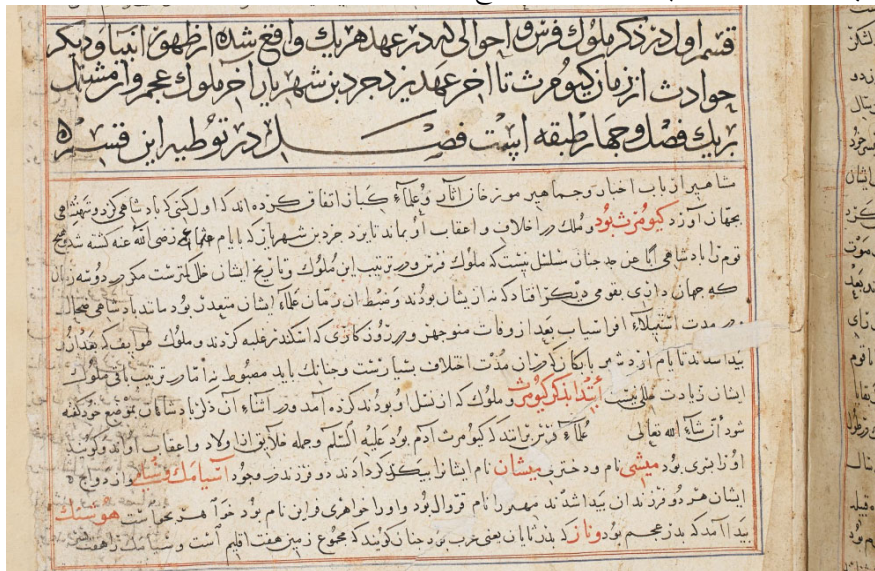 قسم اول در ذکر ملوک فرس و احوالی که در عهد هر یک واقع شده از ظهور انبیا و دیگر
حوادث از زمان کیومرث تا اخر عهد یزدجرد بن شهریار اخر ملوک عجم و ان مشتمل
بر یک فصل و چهار طبقه است فصل در توطیه این قسم
مشاهیر ارباب اخبار و جماهیر مورخان اثار و علماء کبار اتفاق کرده اند که اول کسی که پادشاهی کرد و شهنشاهی
بجهان آورد کیومرث بود و ملک در اخلاف و اعقاب او بماند تا یزدجرد بن شهریار که بایام عثمان رضی الله عنه کشته شد و هیچ
قوم را پادشاهی ابا عن جد چنان مسلسل نیست که ملوک فرس و در ترتیب این ملوک و تاریخ ایشان خلل کمترست مکر در دو سه زمان
که جهان داری بقومی دیکر افتاد که نه از یشان بودند و ضبط ان زمان علماء ایشان متعذر بود مانند پادشاهی ضحاک
در مدت استیلاء افراسیاب بعد از وفات منوجهر و در روزکاری که اسکندر غلبه کردند و ملوک طوایف که بعد از و
پیدا شدند تا ایام اردشیر بابکان که در ان مدت اختلاف بسیارست و چنانک باید مضبوط نه اما در ترتیب باقی ملوک
ایشان زیادت خللی نیست ابتدا بذکر کیومرث و ملوک که از نسل او بودند کرده آمد و در اثناء آن ذکر پادشاهان بموضع خود کفته
شود ان شاء الله تعالی علماء فرس برانند که کیومرث آدم بود علیه السلم و جمله خلایق از اولاد و اعقاب او اند و کویند
او را پسری بود میشی نام و دختری میشان نام ایشانرا بیکدیکر داد دو فرزند در وجود آمد سیامک و واز دواج
ایشان هر دو فرزندان پیدا شدند مهین را نام فروال بود و او را خواهری فراین نام بود هوشنک
پیدا آمد که پدر عجم بود و تاز که پدر تازیان یعنی عرب بود چنان کویند که مجموع زمین هفت اقلیم است و سیامک را هفت